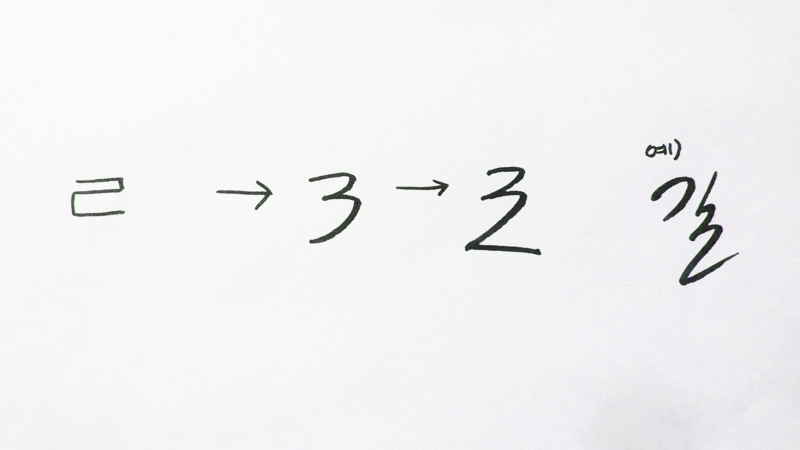 ㄹ → 3 → ㄹ
예)
길